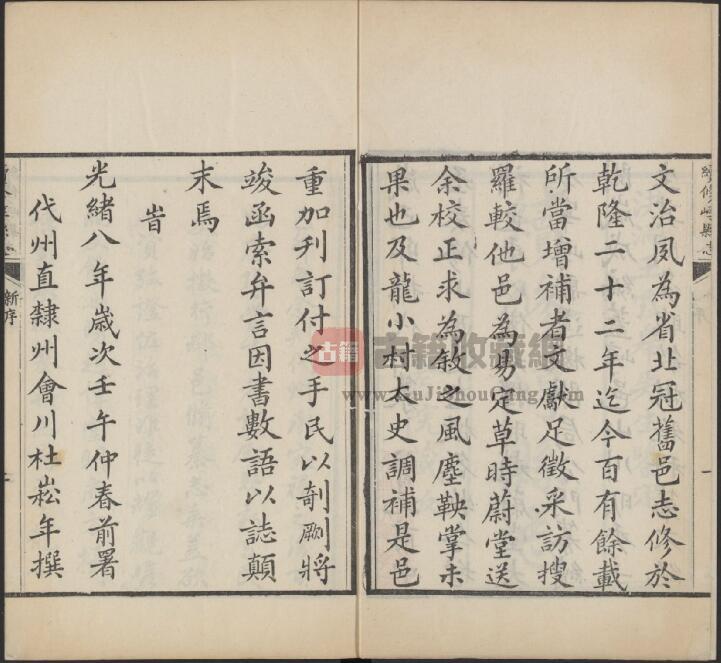 續修崞縣志
序
文治夙為省北冠舊邑志修於
乾隆二十二年迄今百有餘載
所當增補者文獻足徵采訪搜
羅較他邑為易定草時蔚堂送
余校正求為敘之風塵鞅掌未
果也及龍小村太史調補是邑
重加刋訂付之手民以剞劂將
竣函索弁言因書數語以誌顛
末焉
旹
光緒八年歲次壬午仲春前署
代州直隸州會川杜崧年撰
新序
古籍
古籍收藏網
www.GuJiShouCang.com